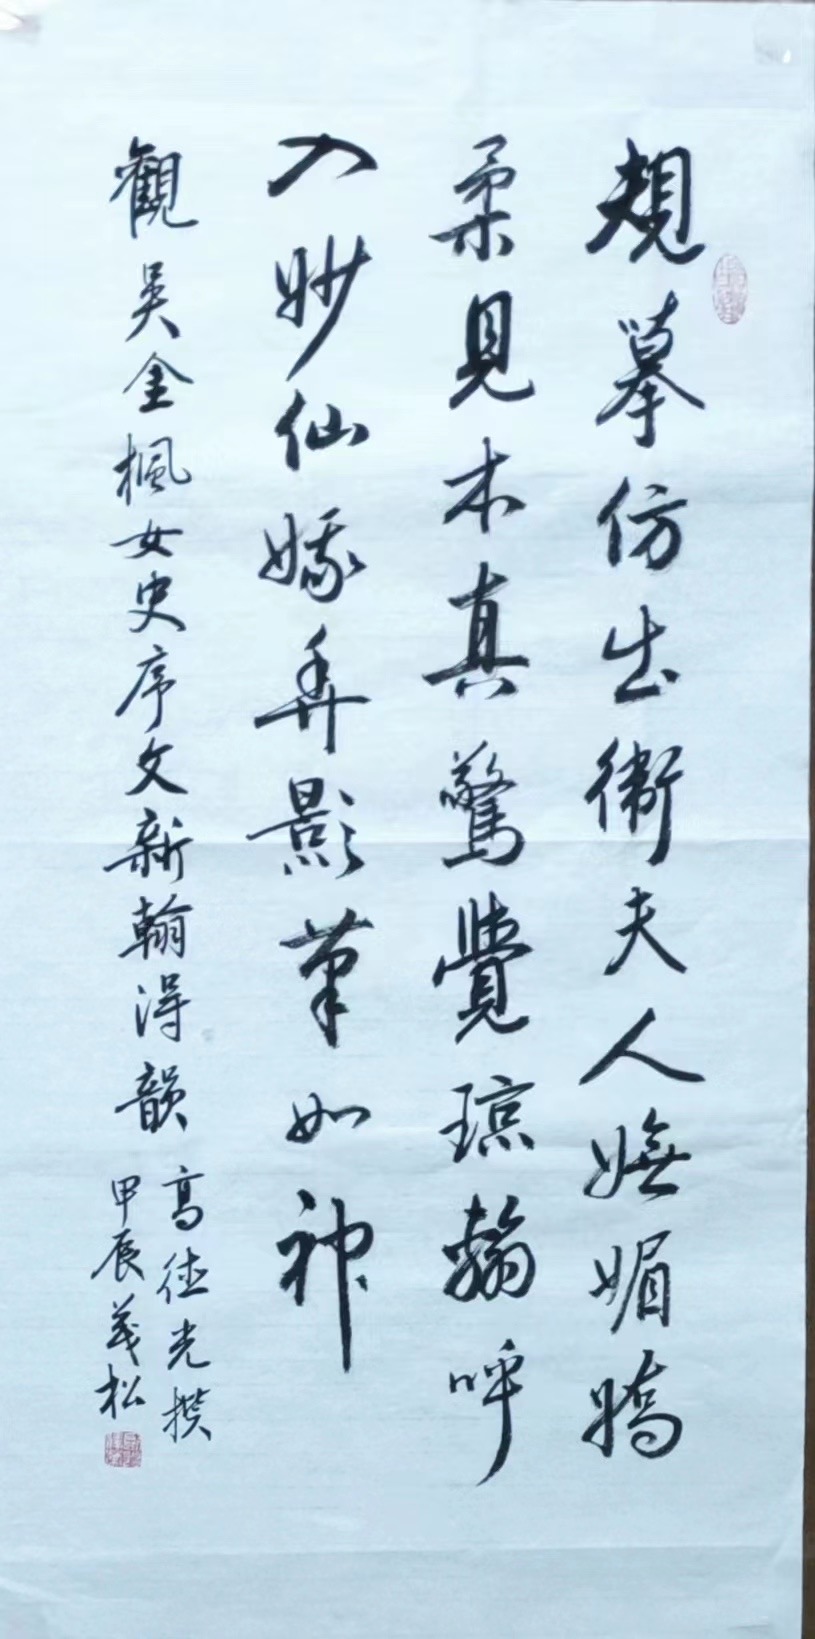 規摹仿出衛夫人嫵媚嬌
柔見本真驚覺琼翰呼
入妙仙娥弄影筆如神
觀吴金楓女史序文新翰得韻
高德光撰
甲辰義松